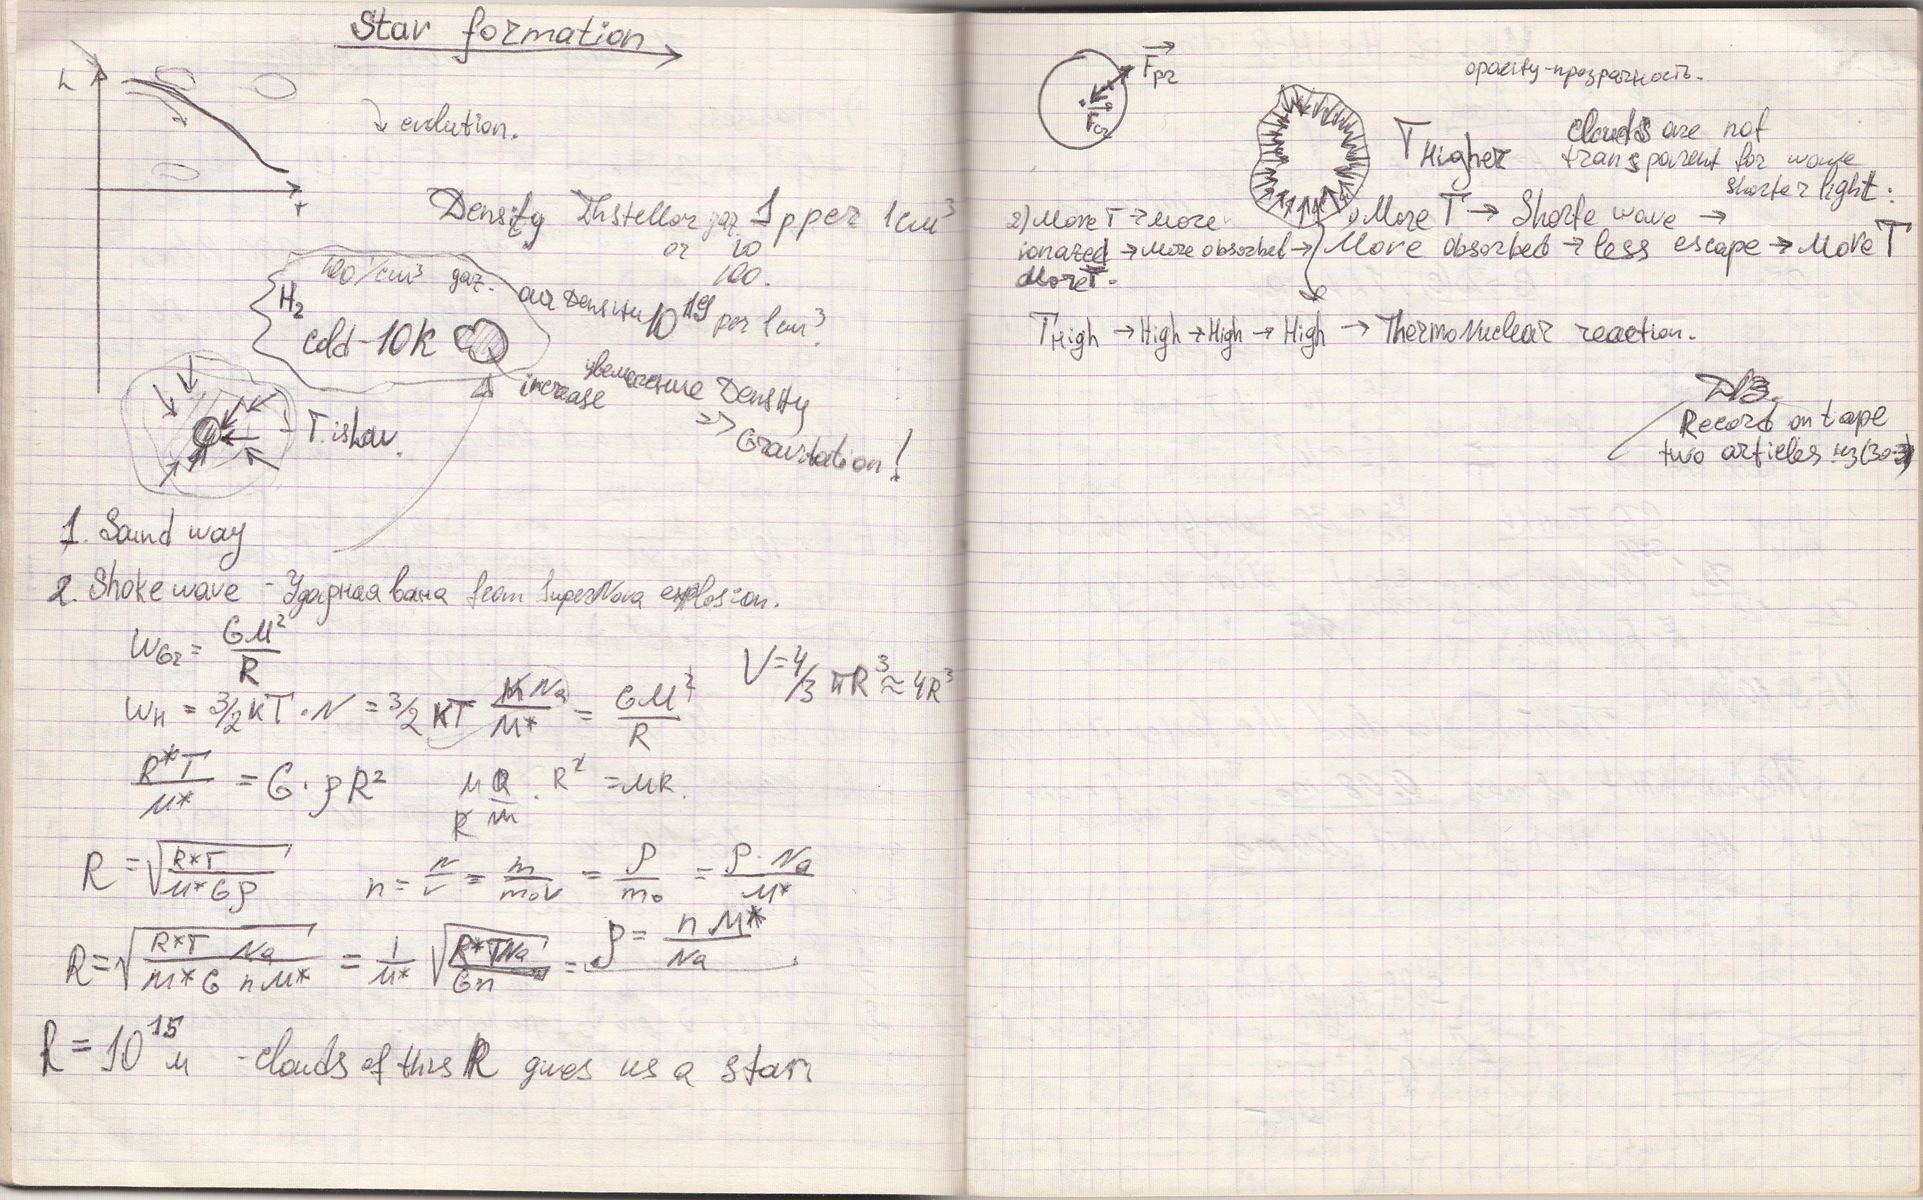 Star formation
L
T
↓ evolution.
Density Instellor gaz 1 p per 1 cm³
or 10
100.
100/cm³ gaz.
H₂
cold - 10K
air Density 10¹⁹ per 1 cm³
increase увеличение Density
=> Gravitation!
T. is Low.
1. Sound way
2. Shoke wave - Ударная вана from SuperNova explosion.
W_Gr = GM²/R
V = 4/3 πR³ ≈ 4R³
W_H = 3/2 KT · N = 3/2 KT M Na/M* = GM²/R
R*T/M* = G · ρR²
· R² = MR.
R = √(R*T/M*Gρ)
n = N/V = m/m₀V = ρ/m₀ = ρ · Na/M*
R = √(R*T Na/M* G n M*) = 1/M* √(R*TNa/Gn) =
ρ = n M*/Na
R = 10¹⁵ м - clouds of this R gives us a starr
F_pr
opacity - прозрачность.
T Higher
clouds are not
transparent for wave
shorter light.
1) More T → Shorte wave →
More absorbed → less escape → More T
2) More T → more
ionazed → More absorbed →
More T.
T High → High → High → High → ThermoNuclear reaction.
D/З.
Record on tape
two articles из